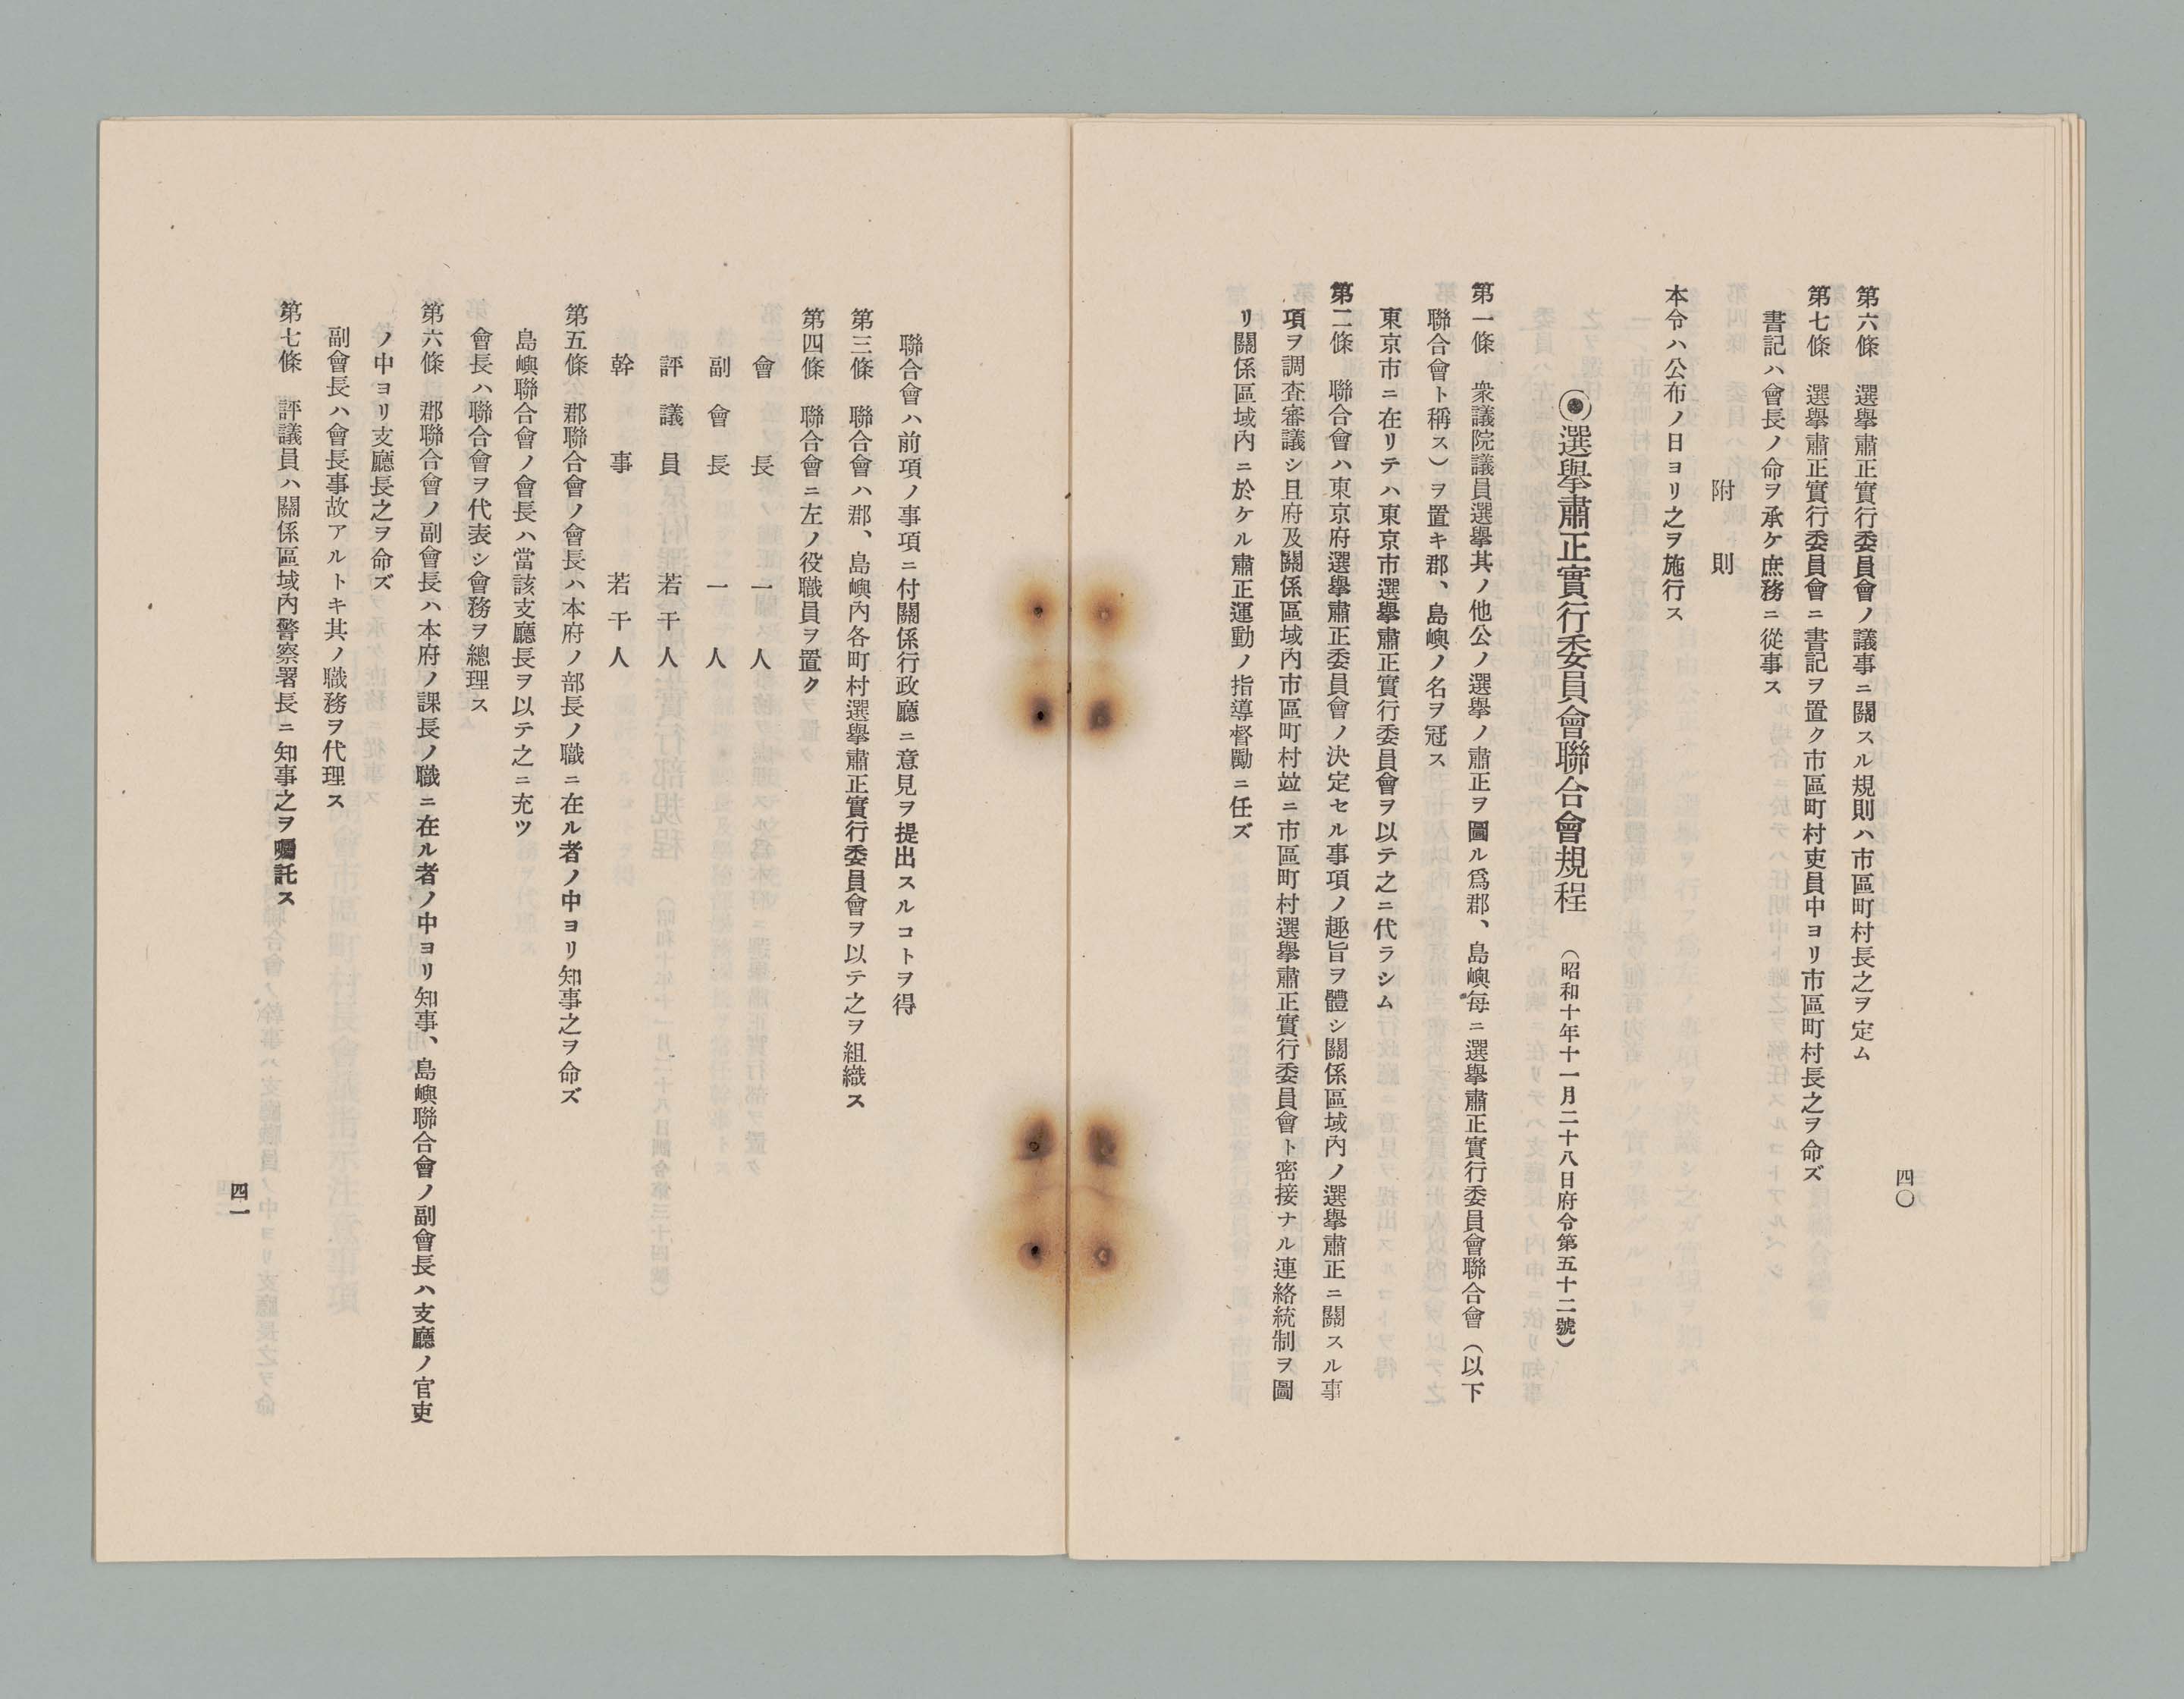 第六條　選擧肅正實行委員會ノ議事ニ關スル規則ハ市區町村長之ヲ定ム
第七條　選擧肅正實行委員會ニ書記ヲ置ク市區町村吏員中ヨリ市區町村長之ヲ命ズ
書記ハ會長ノ命ヲ承ケ庶務ニ從事ス
附　則
本令ハ公布ノ日ヨリ之ヲ施行ス
◉選擧肅正實行委員會聯合會規程（昭和十年十一月二十八日府令第五十二號）
第一條　衆議院議員選擧其ノ他公ノ選擧ノ肅正ヲ圖ル爲郡、島嶼每ニ選擧肅正實行委員會聯合會（以下
聯合會ト稱ス）ヲ置キ郡、島嶼ノ名ヲ冠ス
東京市ニ在リテハ東京市選擧肅正實行委員會ヲ以テ之ニ代ラシム
第二條　聯合會ハ東京府選擧肅正委員會ノ決定セル事項ノ趣旨ヲ體シ關係區域內ノ選擧肅正ニ關スル事
項ヲ調査審議シ且府及關係區域內市區町村竝ニ市區町村選擧肅正實行委員會ト密接ナル連絡統制ヲ圖
リ關係區域內ニ於ケル肅正運動ノ指導督勵ニ任ズ
四〇
聯合會ハ前項ノ事項ニ付關係行政廳ニ意見ヲ提出スルコトヲ得
第三條　聯合會ハ郡、島嶼內各町村選擧肅正實行委員會ヲ以テ之ヲ組織ス
第四條　聯合會ニ左ノ役職員ヲ置ク
會長　一人
副會長　一人
評議員　若干人
幹事　若干人
第五條　郡聯合會ノ會長ハ本府ノ部長ノ職ニ在ル者ノ中ヨリ知事之ヲ命ズ
島嶼聯合會ノ會長ハ當該支廳長ヲ以テ之ニ充ツ
會長ハ聯合會ヲ代表シ會務ヲ總理ス
第六條　郡聯合會ノ副會長ハ本府ノ課長ノ職ニ在ル者ノ中ヨリ知事、島嶼聯合會ノ副會長ハ支廳ノ官吏
ノ中ヨリ支廳長之ヲ命ズ
副會長ハ會長事故アルトキ其ノ職務ヲ代理ス
第七條　評議員ハ關係區域內警察署長ニ知事之ヲ囑託ス
四一